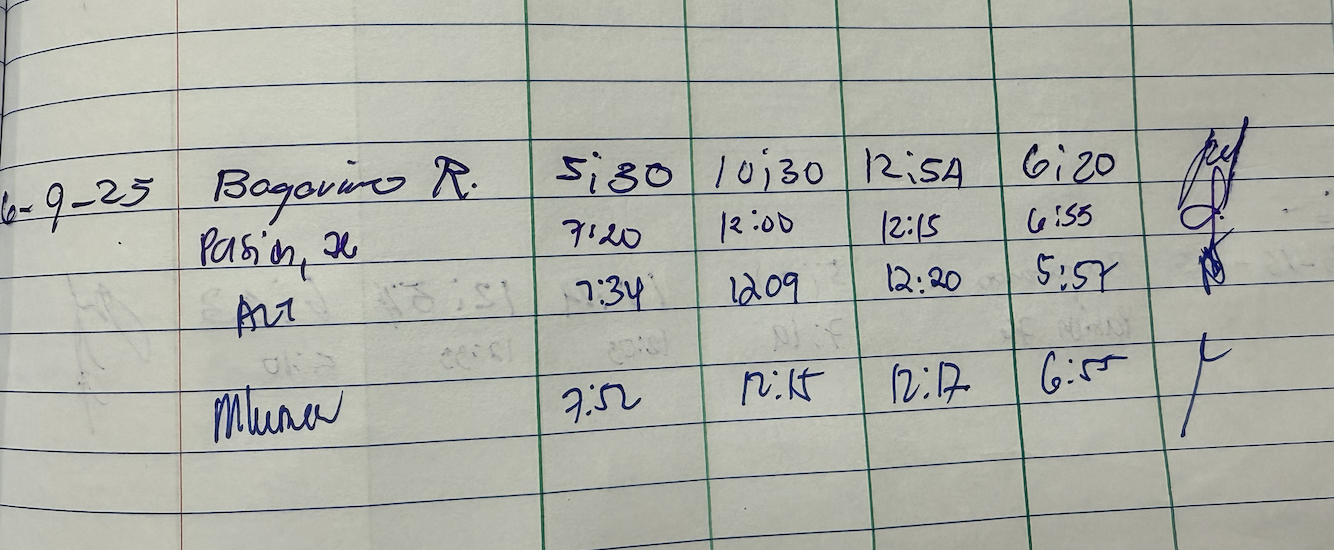 6-9-25 Bagarino R. 5:30 10:30 12:54 6:20
Pasin, 7:20 12:00 12:15 6:55
Art 7:34 1209 12:20 5:57
Mluna 7:52 12:15 12:17 6:55